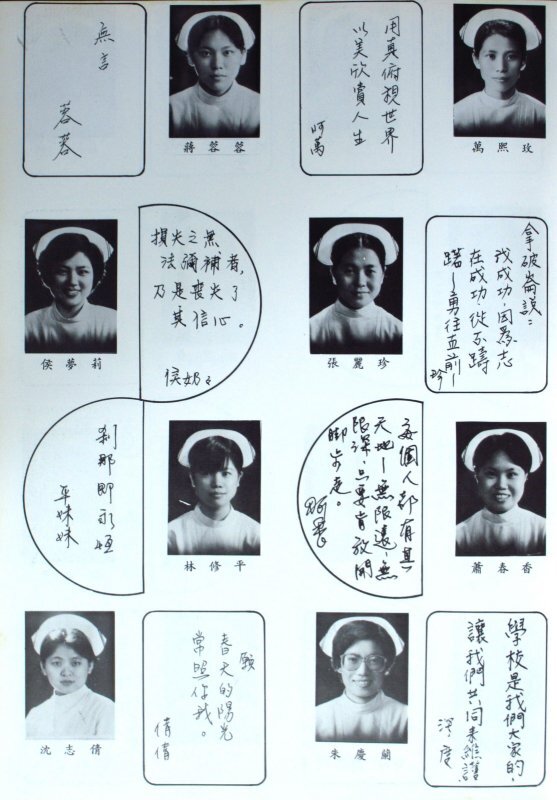 無言
蓉蓉
蔣蓉蓉
用真俯視世界
以美欣賞人生
阿萬
萬熙玫
損失之無
法彌補者，
乃是喪失了
其信心。
侯奶奶
侯夢莉
拿破崙說：
我成功，因為志
在成功從不躊
躇—勇往直前—
珍
張麗珍
剎那即永恆
平妹妹
林修平
每個人都有其
天地—無限遠，無
限深，只要肯放開
脚步走。
蕭春香
願
春天的陽光
常照你我。
倩倩
沈志倩
學校是我們大家的，
讓我們共同來維護
朱慶蘭